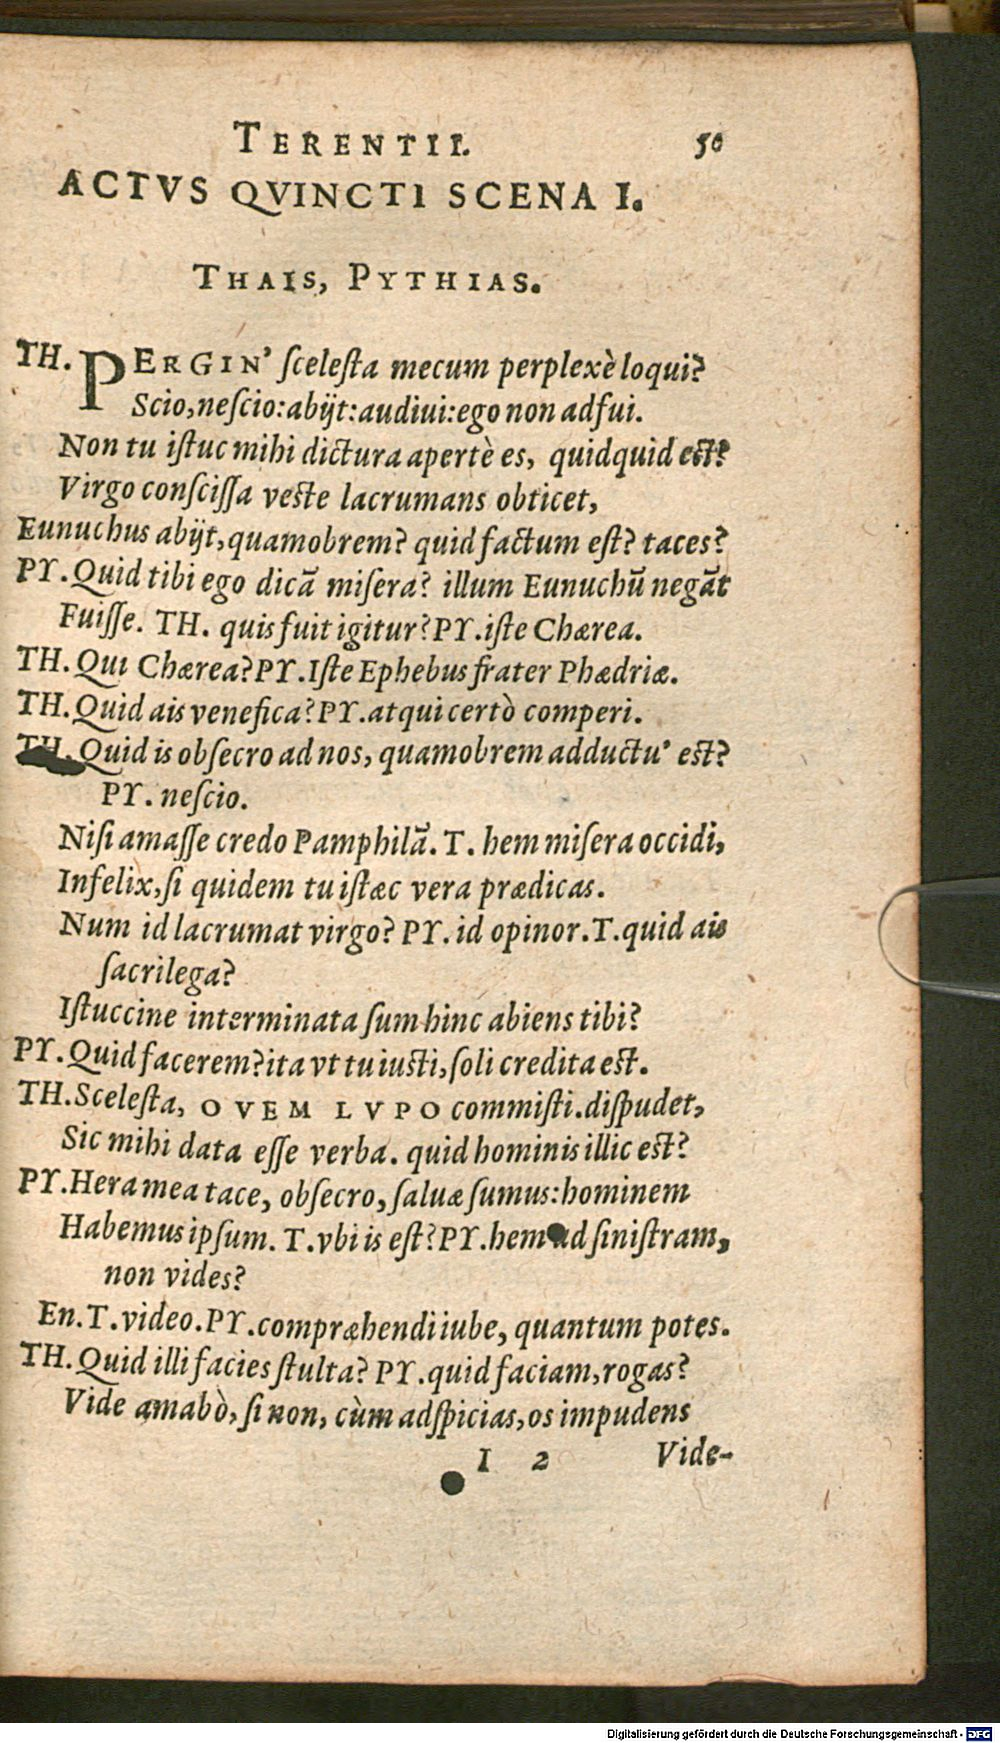 TERENTII. 50
ACTVS QVINCTI SCENA I.
THAIS, PYTHIAS.
TH. PERGIN' scelesta mecum perplexè loqui?
Scio, nescio: abijt: audiui: ego non adfui.
Non tu istuc mihi dictura apertè es, quidquid est?
Virgo conscissa veste lacrumans obticet,
Eunuchus abijt, quamobrem? quid factum est? taces?
PY. Quid tibi ego dicā misera? illum Eunuchū negāt
Fuisse. TH. quis fuit igitur? PY. iste Chærea.
TH. Qui Chærea? PY. Iste Ephebus frater Phædriæ.
TH. Quid ais venefica? PY. atqui certò comperi.
TH. Quid is obsecro ad nos, quamobrem adductu' est?
PY. nescio.
Nisi amasse credo Pamphilā. T. hem misera occidi,
Infelix, si quidem tu istæc vera prædicas.
Num id lacrumat virgo? PY. id opinor. T. quid ais
sacrilega?
Istuccine interminata sum hinc abiens tibi?
PY. Quid facerem? ita vt tu iusti, soli credita est.
TH. Scelesta, OVEM LVPO commisti. dispudet,
Sic mihi data esse verba. quid hominis illic est?
PY. Hera mea tace, obsecro, saluæ sumus: hominem
Habemus ipsum. T. vbi is est? PY. hem ad sinistram,
non vides?
En. T. video. PY. compræhendi iube, quantum potes.
TH. Quid illi facies stulta? PY. quid faciam, rogas?
Vide amabò, si non, cùm adspicias, os impudens
I 2 Vide-
Digitalisierung gefördert durch die Deutsche Forschungsgemeinschaft - DFG